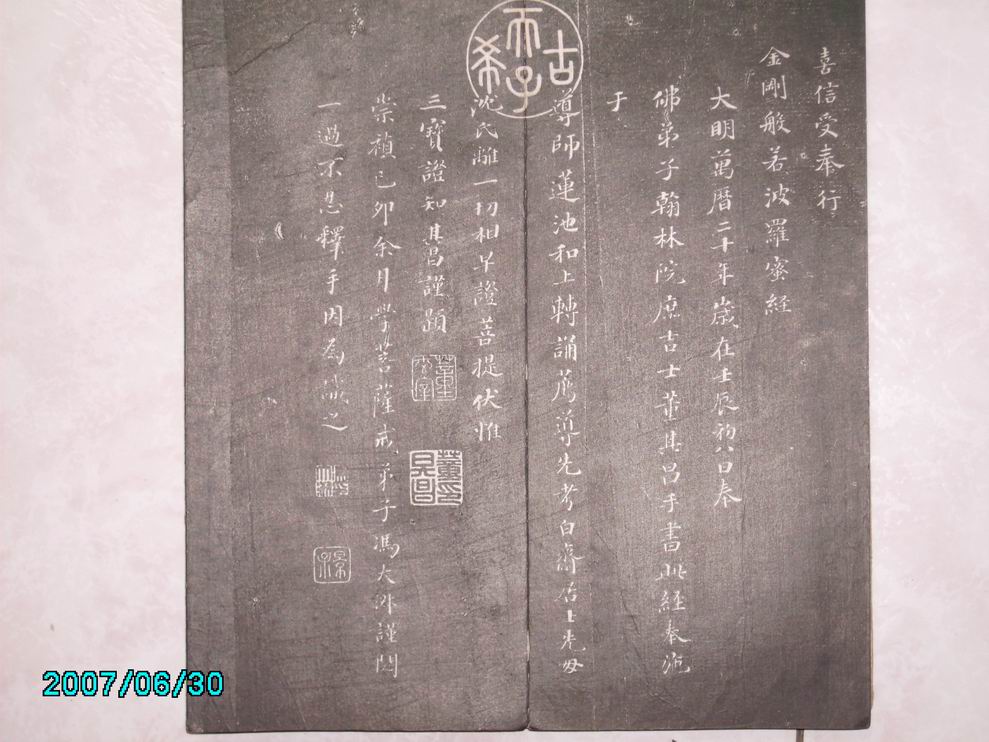 喜信受奉行
金剛般若波羅蜜経
大明萬暦二十年歳在壬辰初八日奉
佛弟子翰林院庶吉士董其昌手書此経奉施
于
導師蓮池和上轉誦薦導先考白齋居士先母
沈氏離一切相早證菩提伏惟
三寶證知其昌謹題
崇禎己卯余月學菩薩戒弟子馮大 謹閱
一過不忍釋手因為識之
古希天子
董其昌印
2007/06/30